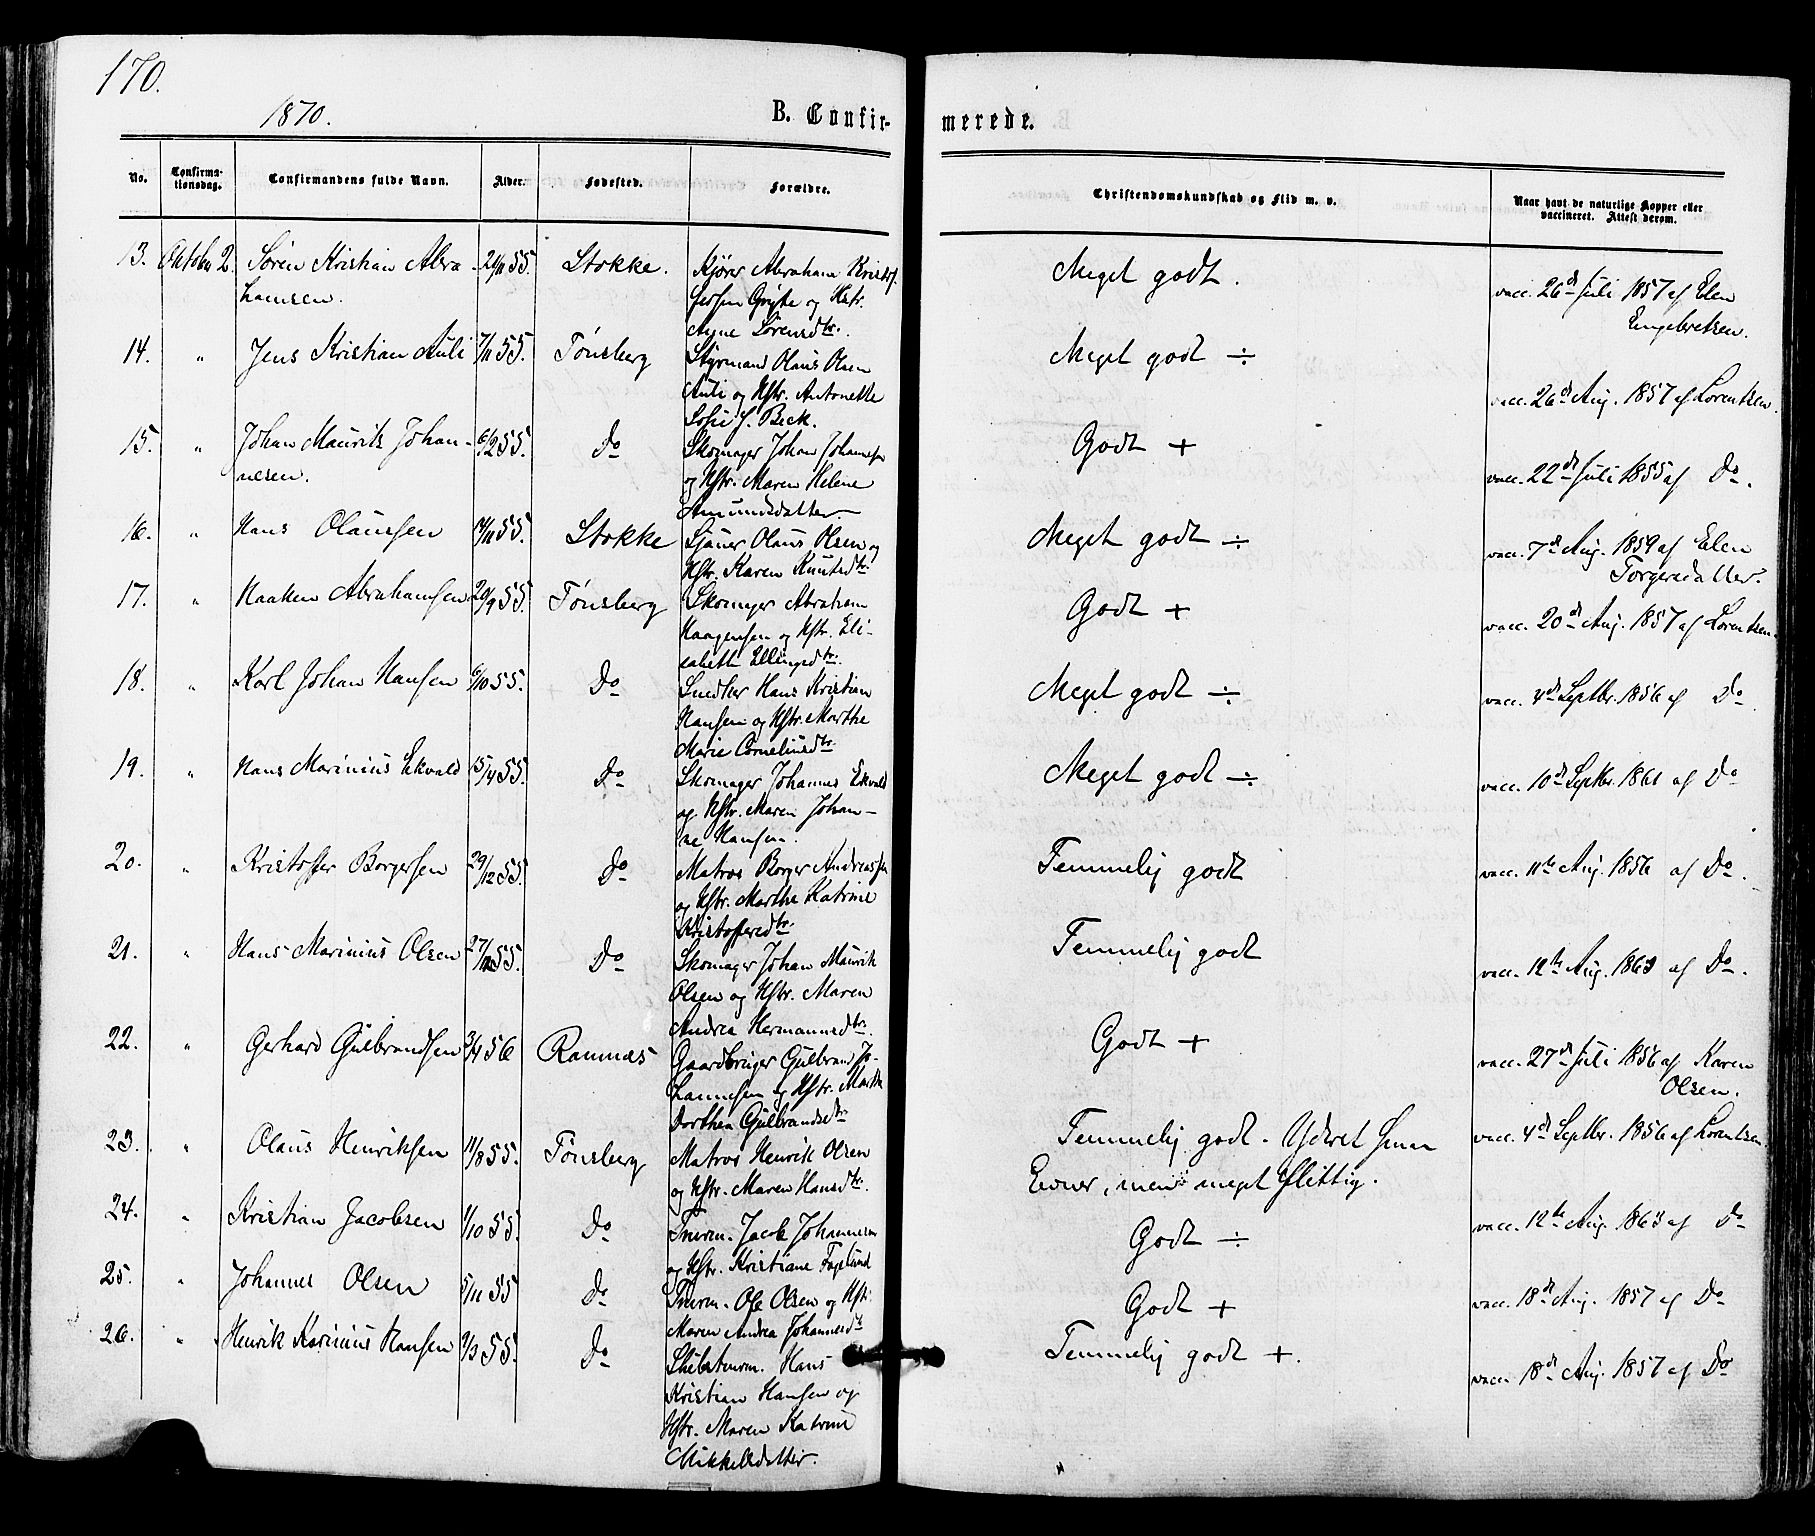 170.
1870.
B. Confirmerede.
No. Confirmationsdag. Confirmandens fulde Navn. Alder. Fødested. Forældre. Christendomskundskab og Flid m. v. Naar havt de naturlige Kopper eller vaccineret. Attest derom.
13. Oktober 2. Søren Kristian Abra- 55. Stokke. Abrahane Meget godt. vacc. 26de Juli 1857 af Elen
hamsen. og Hstr. Engebretsen.
Sørensdtr.
14. " Jens Kristian Auli 7/11 55. Tønsberg Styrmand Olaus Olsen Meget godt ÷
Auli og Hstr. Antonette vacc. 26de Aug. 1857 af Lorentzen.
Sofie J. Beck.
15. " Johan Maurits Johan- 6/2 55. Do Skomager Johan Johannesen Godt +
nesen. og Hstr. Maren Helene vacc. 22de Juli 1855 af Do.
Amundsdatter.
16. " Hans Olaussen 14/11 55. Stokke Sjauer Olaus Olsen og Meget godt ÷ vacc. 7de Aug. 1859 af Elen
Hstr. Karen Knutsdtr. Torgersdatter.
17. " Haaken Abrahamsen 20/9 55. Tønsberg Skomager Abraham Godt + vacc. 20de Aug. 1857 af Lorentzen.
Haagensen og Hstr. Eli-
sabeth Ellingsdtr.
18. " Karl Johan Hansen 6/10 55. Do Snedker Hans Kristian Meget godt ÷ vacc. 4de Septbr. 1856 af Do
Hansen og Hstr. Marthe
Marie Corneliusdtr.
19. " Hans Marinius Ekvald 15/4 55. Do Skomager Johannes Ekvald Meget godt ÷ vacc. 10de Septbr. 1861 af Do
og Hstr. Maren Johan-
ne Hansen.
20. " Kristoffer Borgersen 29/12 55. Do Matros Borger Andreassen Temmelig godt vacc. 11te Aug. 1856 af Do.
og Hstr. Marthe Katrine
Kristoffersdtr.
21. " Hans Marinius Olsen 27/12 55. Do Skomager Johan Maurik Temmelig godt vacc. 12te Aug. 1863 af Do.
Olsen og Hstr. Maren
Andrea Hermannsdtr.
22. " Gerhard Gulbrandsen 3/4 56 Ramnæs Gaardbruger Gulbran Jo- Godt + vacc. 27de Juli 1856 af Karen
hannesen og Hstr. Marthe Olsen.
Dorthea Gulbrandsdtr.
23. " Olaus Henriksen 11/8 55. Tønsberg Matros Henrik Olsen Temmelig godt. Yderst smaa vacc. 4de Septbr. 1856 af Lorentzen.
og Hstr. Maren Hansdtr. Evner, men meget flittig.
24. " Kristian Jacobsen 1/10 55. Do Tmrm. Jacob Johannesen Godt ÷ vacc. 12te Aug. 1863 af Do
og Hstr. Kristiane Fogelund
25. " Johannes Olsen 5/11 55 Do Tmrm. Ole Olsen og Hstr. Godt + vacc. 18de Aug. 1857 af Do
Maren Andrea Johannesdtr
26. " Henrik Karinius Hansen 2/3 55. Do Skibstmrm. Hans Temmelig godt +. vacc. 18de Aug. 1857 af Do
Kristian Hansen og
Hstr. Maren Katrine
Mikkelsdatter.